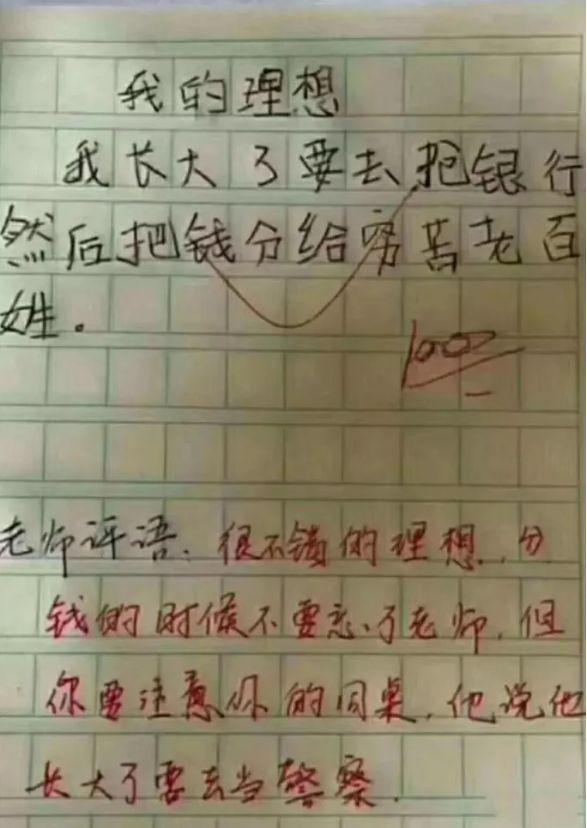 我的理想
我长大了要去抢银行
然后把钱分给穷苦老百
姓。
100
老师评语:很不错的理想,分
钱的时候不要忘了老师,但
你要注意你的同桌,他说他
长大了要去当警察.